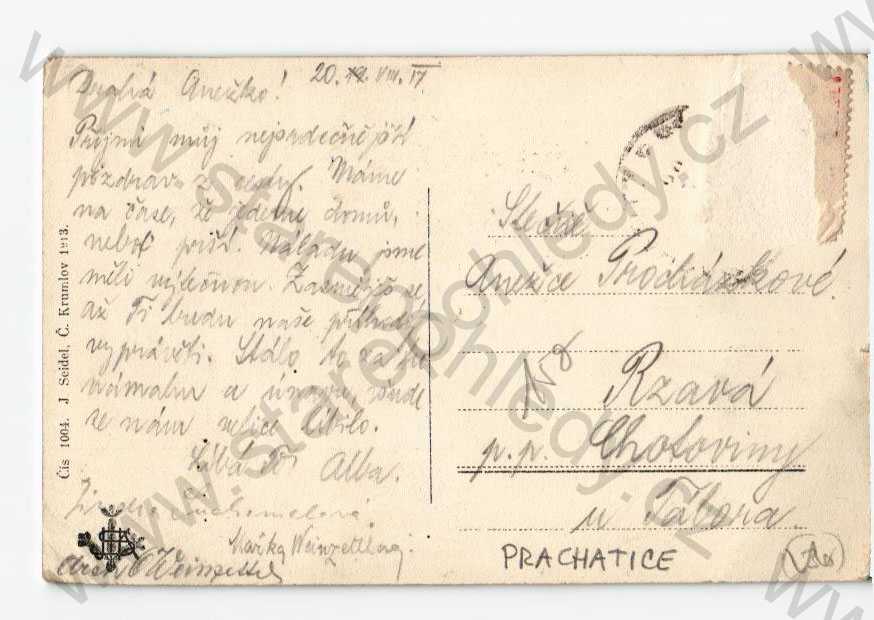 Drahá Anežko! 20. VIII. 17
Přijmi můj nejsrdečnější
pozdrav z cesty. Máme
na čase, že jedeme domů,
neboť prší. Náladu jsme
měli výbornou. Zasměješ se,
až Ti budu naše příhody
vyprávěti. Stálo to za tu
námahu a únavu, všude
se nám velice líbilo.
Líbá Tě Alba.
Suchomelová
Mařka Weinzettlová.
Weinzettl
Čís 1004. J Seidel, Č. Krumlov 1913.
Slečně
Anežce Procházkové.
Rzavá
p. p. Chotoviny
u Tábora.
PRACHATICE
www.starepohledy.cz